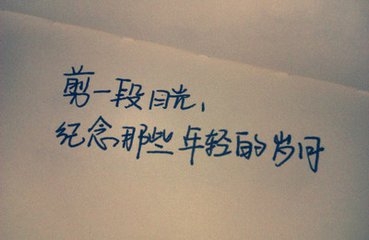 剪一段时光，
纪念那些年轻的岁月